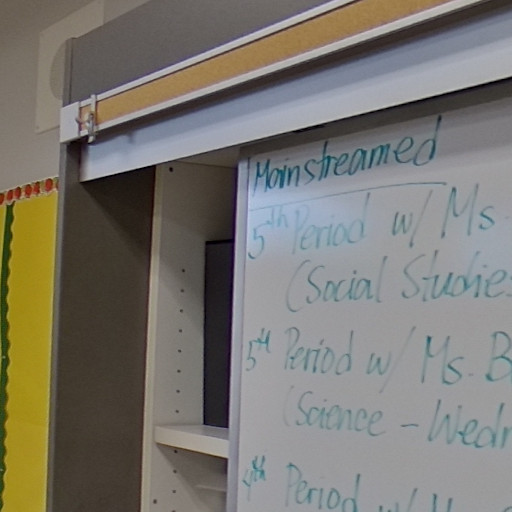 Mainstreamed
5th Period w/ Ms.
(Social Studies
5th Period w/ Ms. B
(Science - Wedn
4th Period w/